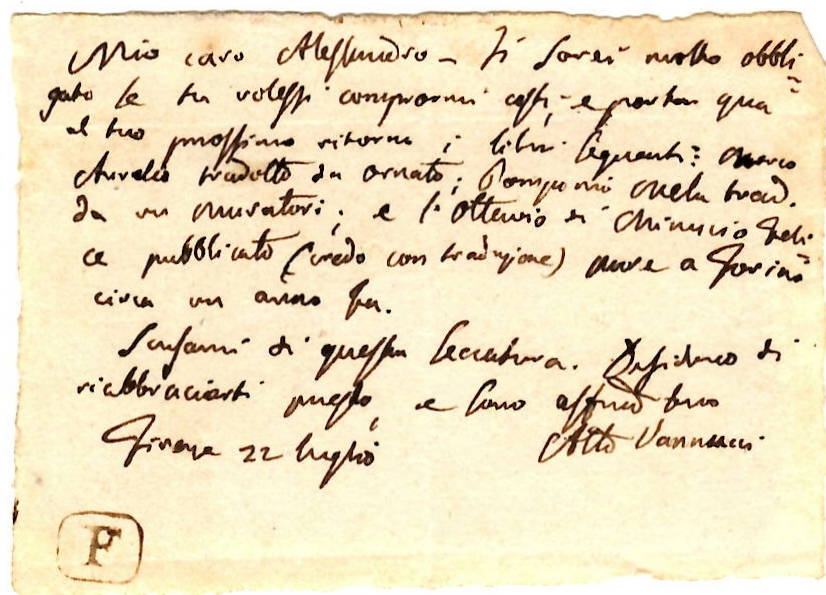 Mio caro Alessandro – Ti sarei molto obbli=
gato se tu volessi comprarmi costì, e portar qua
al tuo prossimo ritorno i libri seguenti: Marco
Aurelio tradotto da Ornato; Pomponio Mela trad.
da un Muratori; e l'Ottavio di Minucio Feli
ce pubblicato (credo con traduzione) pure a Torino
circa un anno fa.
Scusami di questa seccatura. Desidero di
riabbracciarti presto, e sono affmo tuo
Firenze 22 luglio
Atto Vannucci
F